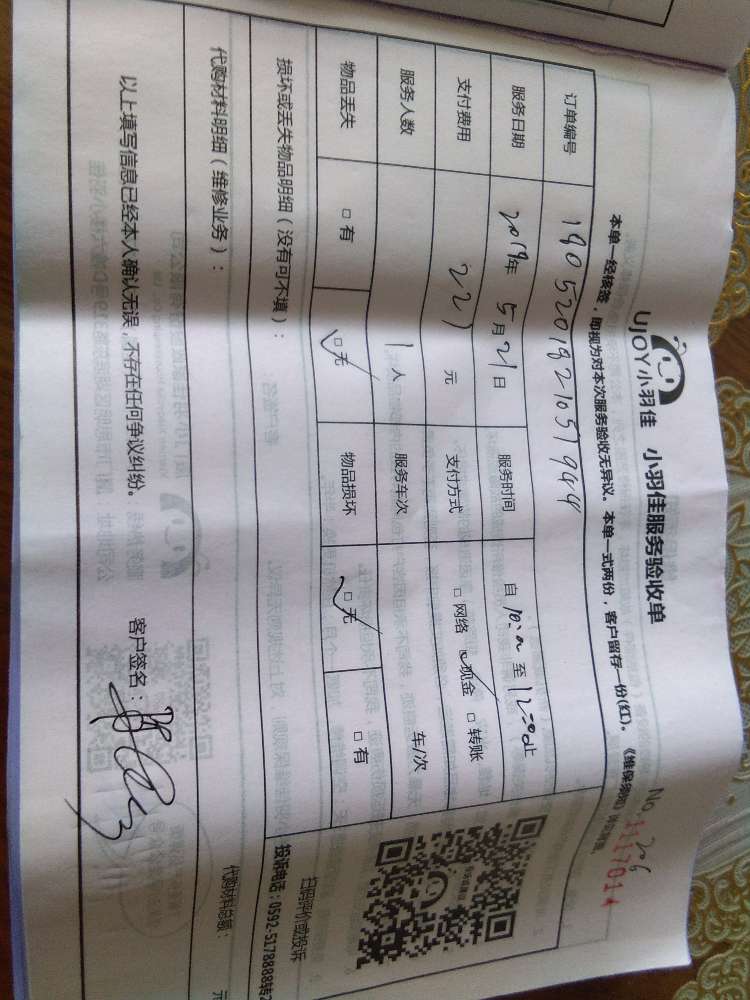 UJOY小羽佳 小羽佳服务验收单
No 206
1117014
本单一经核签，即视为对本次服务验收无异议。本单一式两份，客户留存一份(红)。
订单编号 1905201921051944
服务日期 2019年 5月 21日 服务时间 自 10:00 至 12:00止
支付费用 221 元 支付方式 □网络 □现金 □转账
服务人数 1人 服务车次 车/次
物品丢失 □有 □无 物品损坏 □无 □有
损坏或丢失物品明细（没有可不填）：
扫码评价或投诉
投诉电话：0592-5178888转
代购材料明细（维修业务）：
代购材料总额： 元
以上填写信息已经本人确认无误，不存在任何争议纠纷。 客户签名：